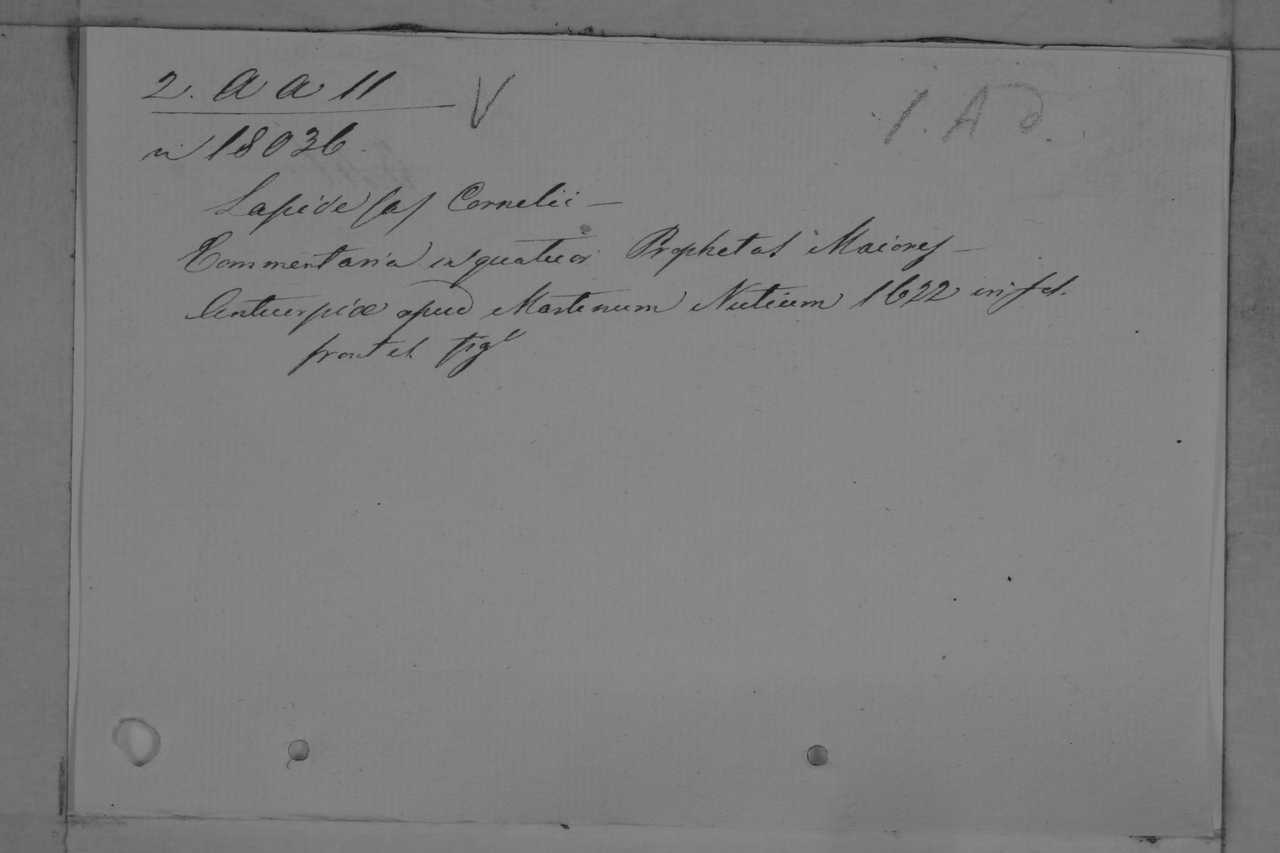 2. a a 11 V
1. A d.
n 18036.
Lapide (a) Cornelii —
Commentaria in quatuor Prophetas Maiores —
Antuerpiæ apud Martinum Nutium 1622 in fol.
front et fig